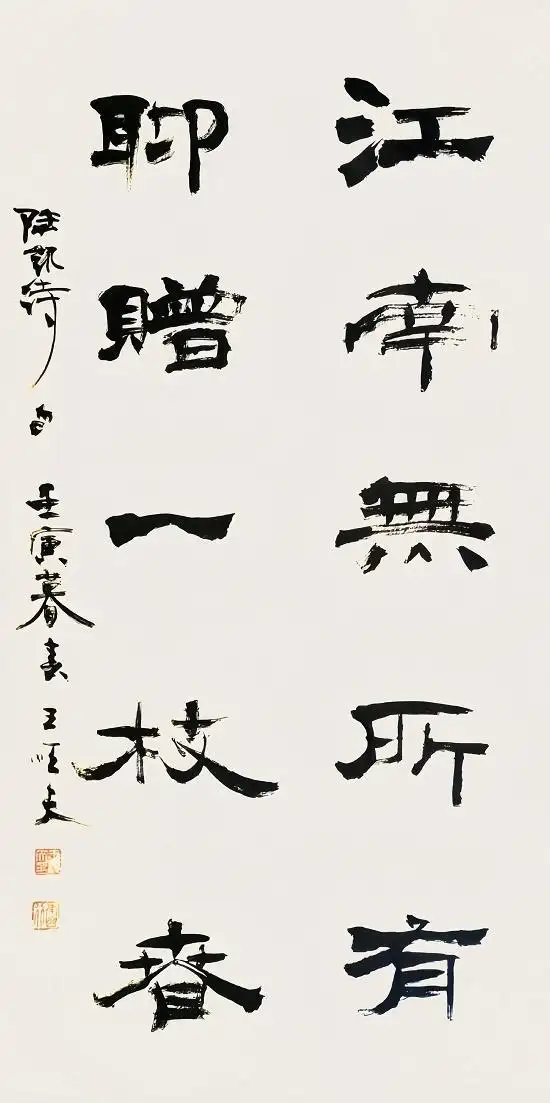 江南無所有
聊贈一枝春
陸凱詩句 壬寅暮春 王順夫